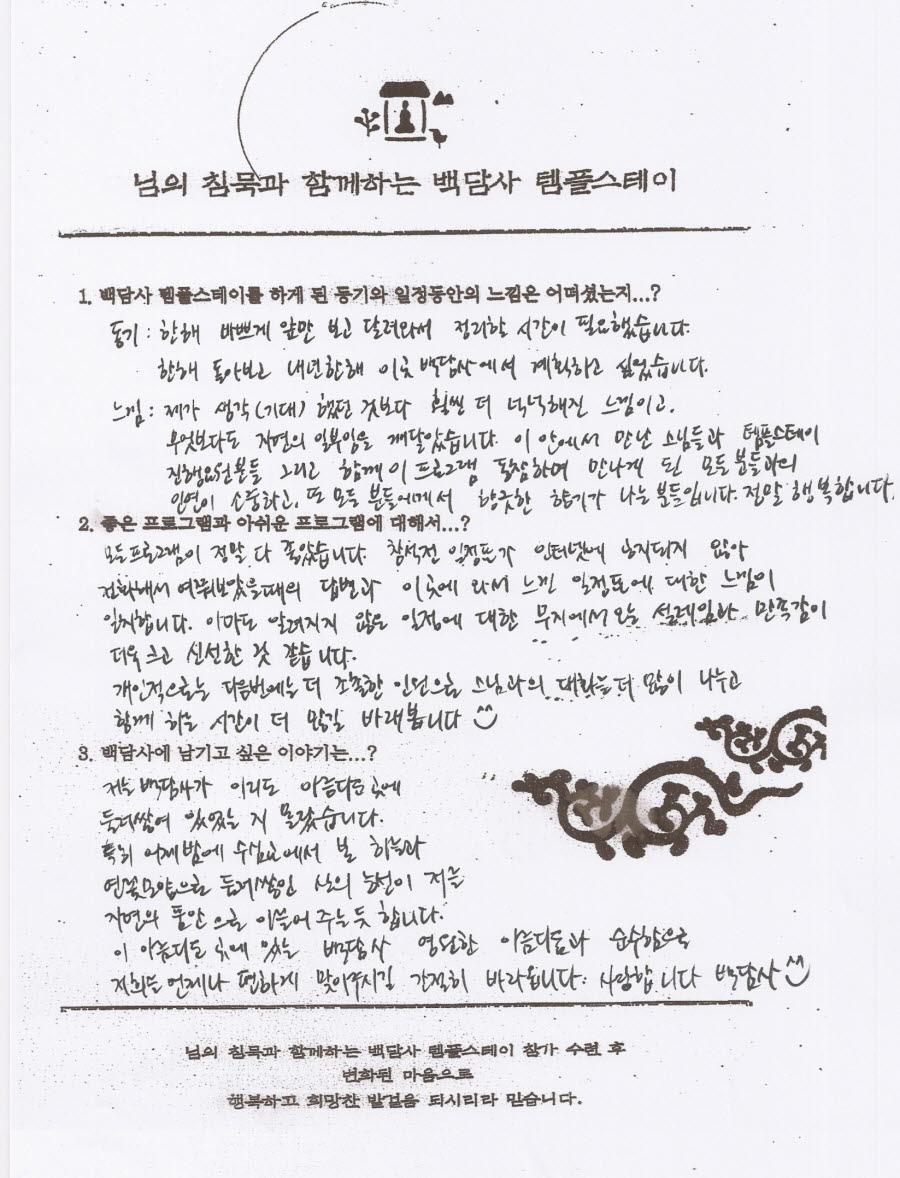 님의 침묵과 함께하는 백담사 템플스테이
1. 백담사 템플스테이를 하게 된 동기와 일정동안의 느낌은 어떠셨는지...?
동기 : 한해 바쁘게 앞만 보고 달려와서 정리할 시간이 필요했습니다.
한해 돌아보고 내년한해 이곳 백담사에서 계획하고 싶었습니다.
느낌 : 제가 생각(기대) 했던 것보다 훨씬 더 넉넉해진 느낌이고,
무엇보다도 자연의 일부임을 깨달았습니다. 이 안에서 만난 스님들과 템플스테이
진행요원분들 그리고 함께 이 프로그램 동참하며 만나게 된 모든 분들과의
인연이 소중하고, 또 모든 분들에게서 향긋한 향기가 나는 분들입니다. 정말 행복합니다.
2. 좋은 프로그램과 아쉬운 프로그램에 대해서...?
모든 프로그램이 정말 다 좋았습니다. 참석전 일정표가 인터넷에 않아
전화해서 여쭤보았을때의 답변과 이곳에 와서 느낀 일정표에 대한 느낌이
일치합니다. 아마도 알려지지 않은 일정에 대한 무지에서 오는 설레임과 만족감이
더욱 크고 신선한 것 같습니다.
개인적으로는 다음번에는 더 조촐한 인원으로 스님과의 대화를 더 많이 나누고
함께 하는 시간이 더 많길 바래봅니다
3. 백담사에 남기고 싶은 이야기는...?
저는 백담사가 이리도 아름다운 곳에
둘러쌓여 있었는 지 몰랐습니다.
특히 어제 밤에 수심교에서 본 하늘과
연꽃모양으로 둘러쌓인 산의 능선이 저를
자연의 품안으로 이끌어 주는듯 합니다.
이 아름다운 곳에 있는 백담사 영원한 아름다움과 순수함으로
저희를 언제나 편하게 맞아주시길 간절히 바라옵니다. 사랑합니다 백담사
님의 침묵과 함께하는 백담사 템플스테이 참가 수련 후
변화된 마음으로
행복하고 희망찬 발걸음 되시리라 믿습니다.